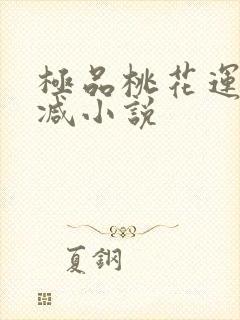 極品桃花運
減小說
夏鋼